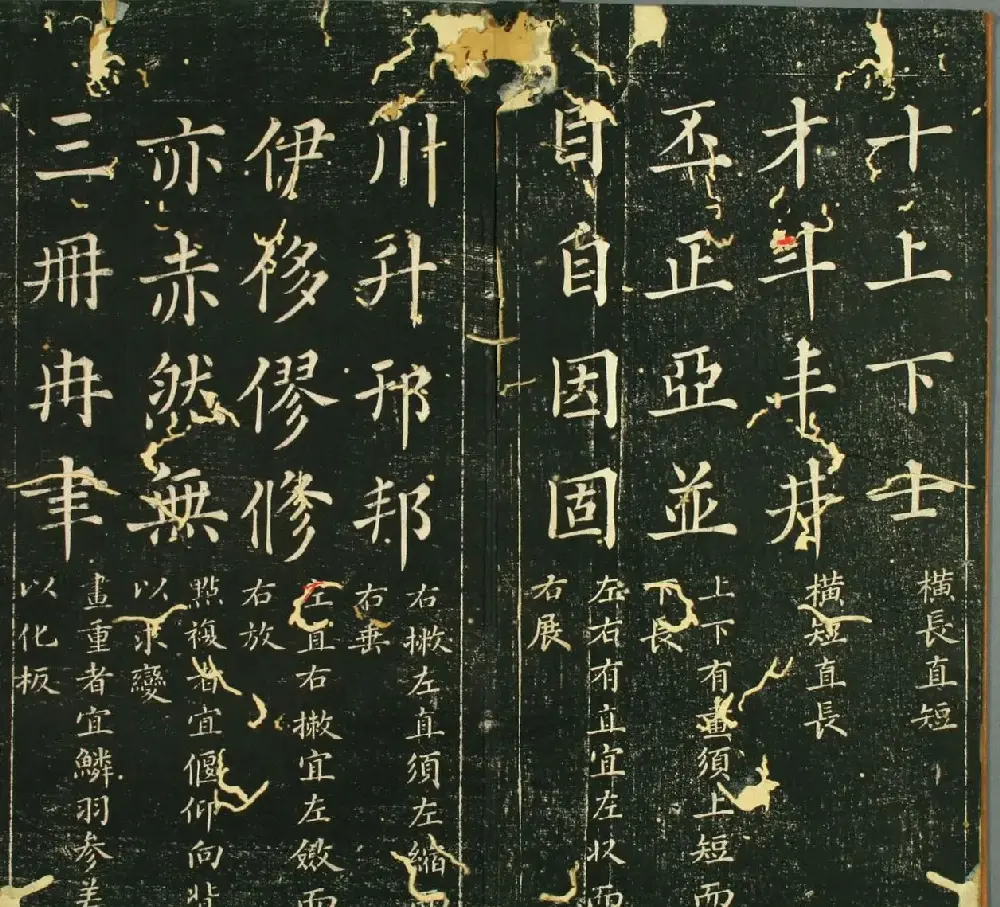 十上下士
橫長直短
才斗丰井
橫短直長
丕正亞並
上下有畫須上短而
下長
目自因固
左右有直宜左收而
右展
川升邢邦
右撇左直須左縮而
右垂
伊侈僇修
左直右撇宜左斂而
右放
亦赤然無
點複者宜偃仰向背
以求變
三冊冉聿
畫重者宜鱗羽参差
以化板